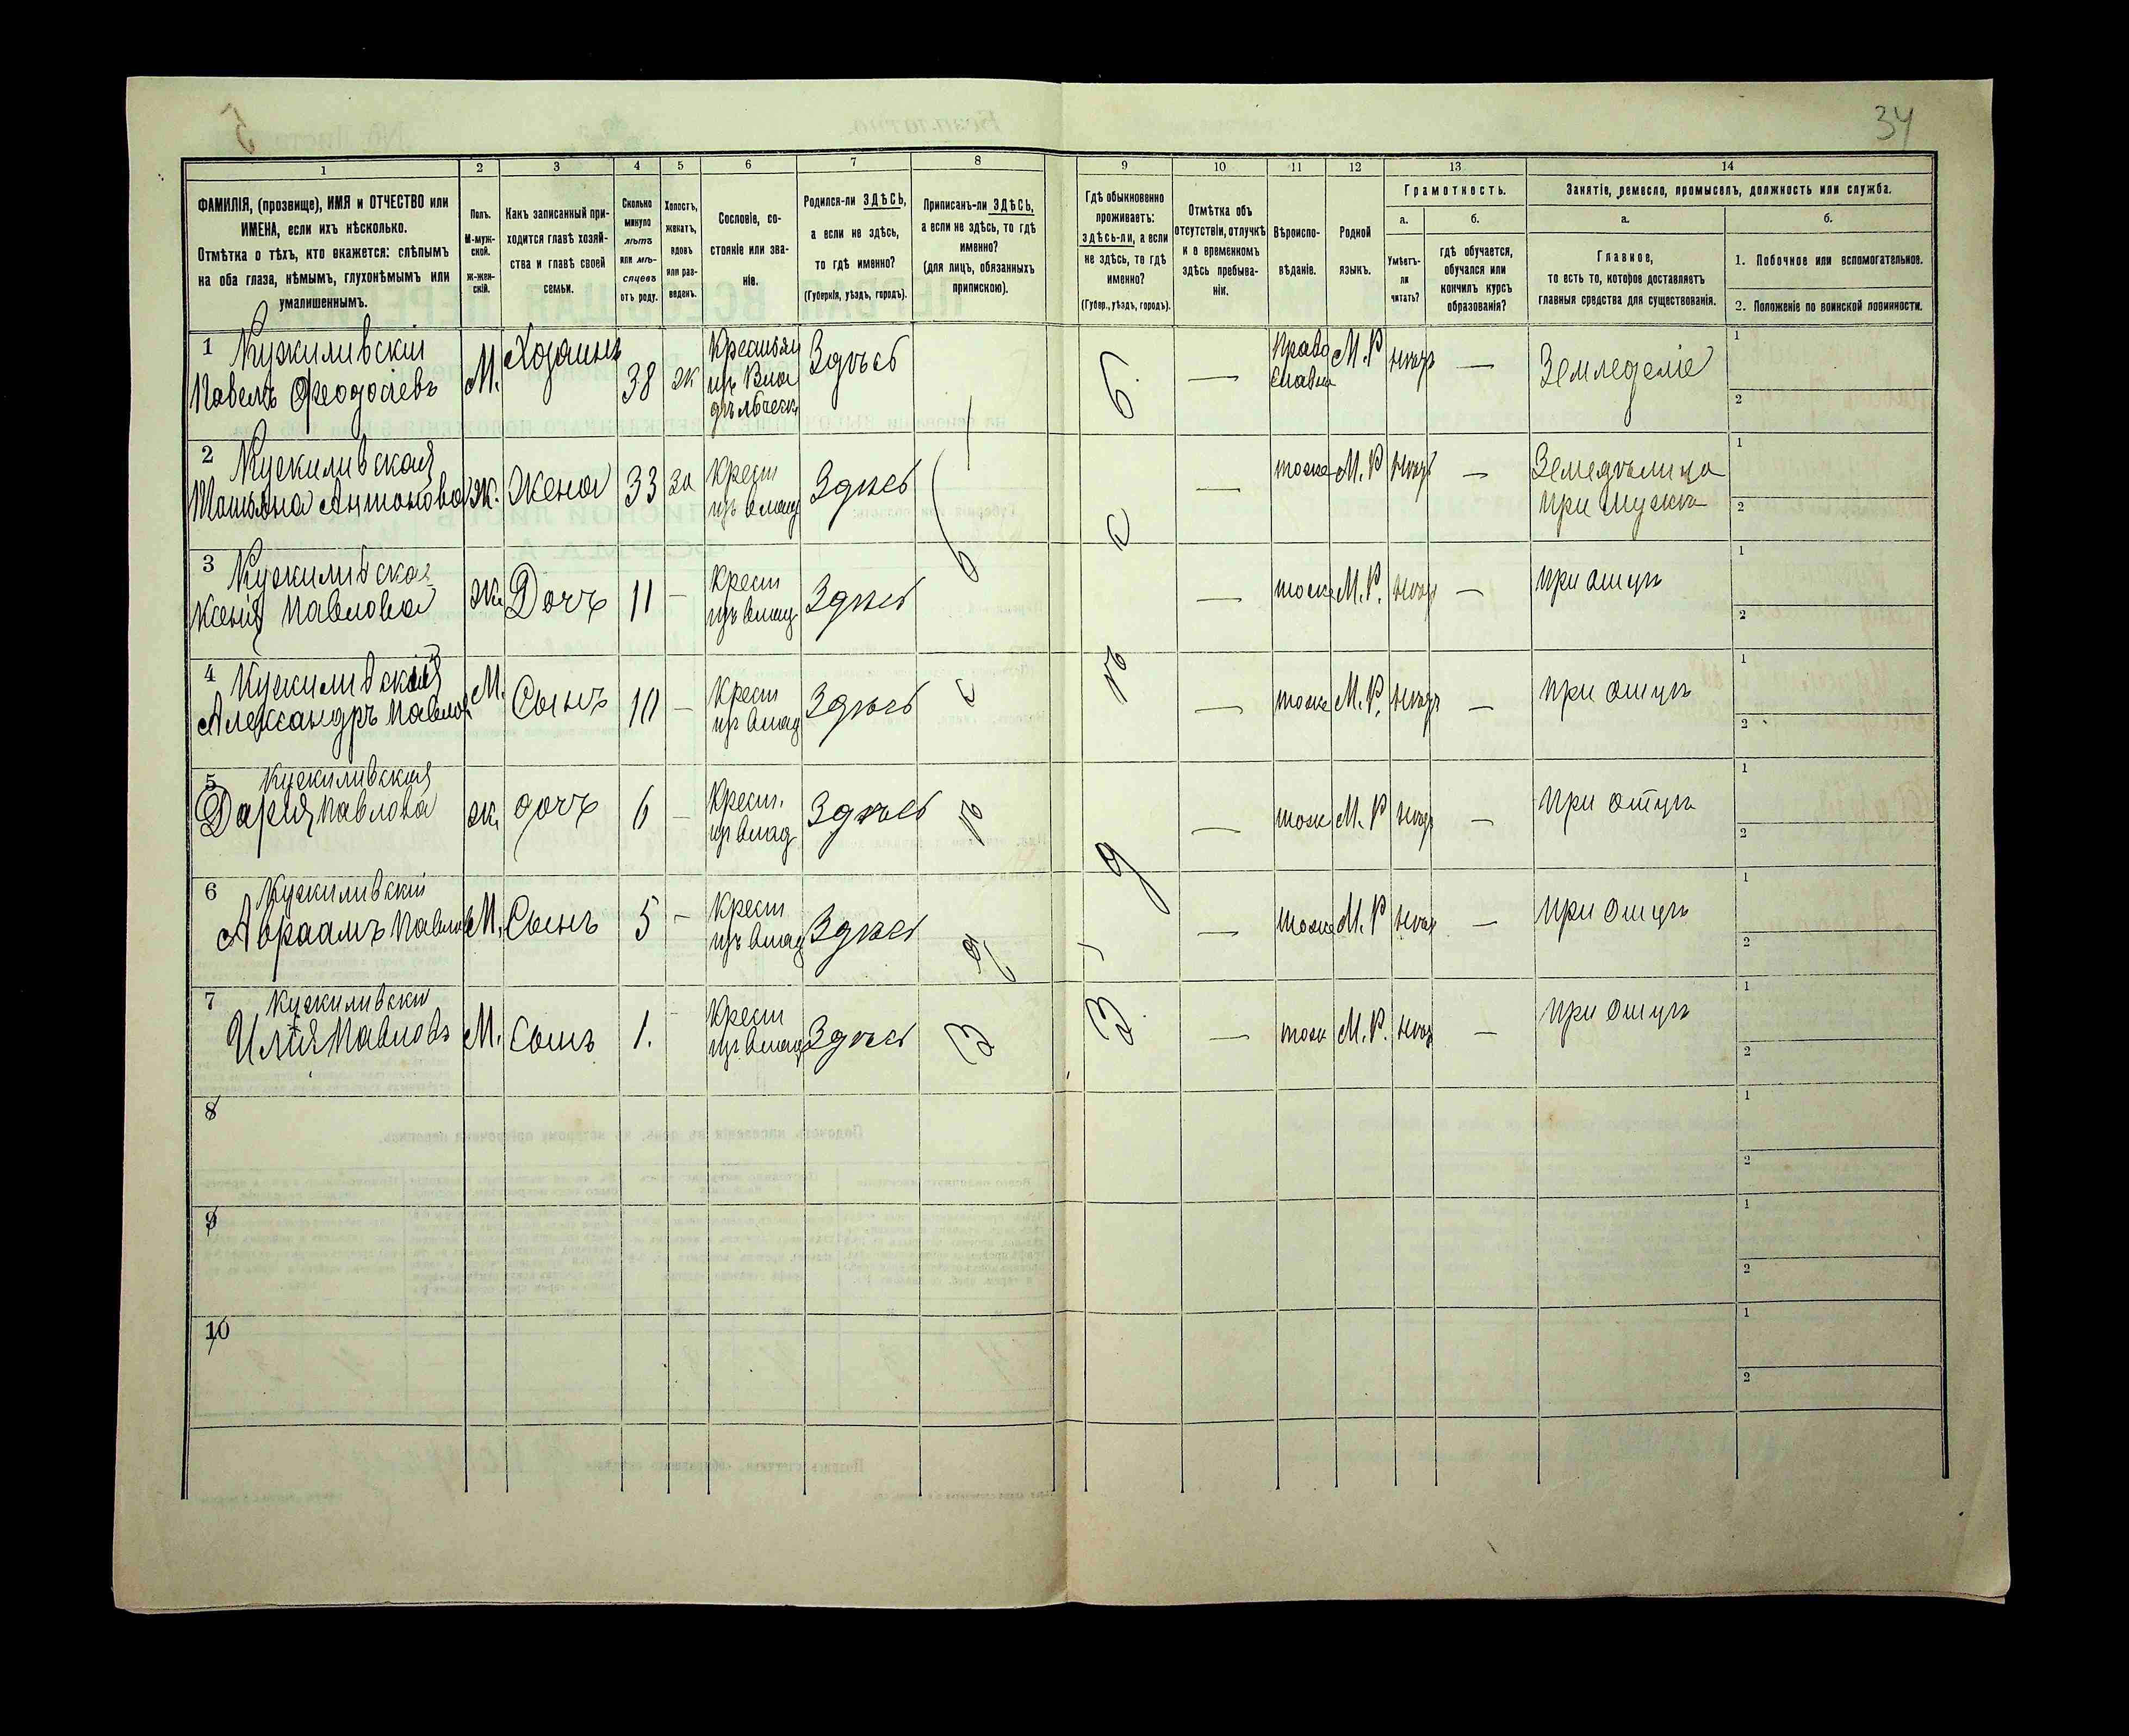 34
1
2
3
4
5
6
7
8
9
10
11
12
13
14
ФАМИЛІЯ, (прозвище), ИМЯ и ОТЧЕСТВО или
ИМЕНА, если ихъ нѣсколько.
Отмѣтка о тѣхъ, кто окажется: слѣпымъ
на оба глаза, нѣмымъ, глухонѣмымъ или
умалишеннымъ.
Полъ.
М-муж-
ской.
ж-жен-
скій.
Какъ записанный при-
ходится главѣ хозяй-
ства и главѣ своей
семьи.
Сколько
минуло
лѣтъ
или мѣ-
сяцевъ
отъ роду.
Холостъ,
женатъ,
вдовъ
или раз-
веденъ.
Сословіе, со-
стояніе или зва-
ніе.
Родился-ли ЗДѢСЬ,
а если не здѣсь,
то гдѣ именно?
(Губернія, уѣздъ, городъ).
Приписанъ-ли ЗДѢСЬ,
а если не здѣсь, то гдѣ
именно?
(для лицъ, обязанныхъ
припискою).
Гдѣ обыкновенно
проживаетъ:
здѣсь-ли, а если
не здѣсь, то гдѣ
именно?
(Губер., уѣздъ, городъ).
Отмѣтка объ
отсутствіи, отлучкѣ
и о временномъ
здѣсь пребыва-
ніи.
Вѣроиспо-
вѣданіе.
Родной
языкъ.
Грамотность.
а.
Умѣетъ-
ли
читать?
б.
гдѣ обучается,
обучался или
кончилъ курсъ
образованія?
Занятіе, ремесло, промыселъ, должность или служба.
а.
Главное,
то есть то, которое доставляетъ
главныя средства для существованія.
б.
1. Побочное или вспомогательное.
2. Положеніе по воинской повинности.
1 Кужиливскій
Павелъ Феодосіевъ
М.
Хозяинъ
38
ж
Крестьян
изъ Вла
дѣльческ
Здѣсь
Здѣсь
Здѣсь
—
Право
славн
М.Р
нѣтъ
—
Земледеліе
1
2
2 Кужиливская
Татьяна Антонова
ж.
Жена
33
за
Крест
изъ влад
Здѣсь
—
тоже
М.Р
нѣтъ
—
Земледѣлица
при мужѣ
1
2
3 Кужиливская
Ксенія Павлова
ж.
Дочь
11
—
Крест
изъ влад
Здѣсь
—
тоже
М.Р.
нѣтъ
—
при отцѣ
1
2
4 Кужиливскій
Александръ Павлов
М.
Сынъ
10
—
Крест
изъ влад
Здѣсь
—
тоже
М.Р.
нѣтъ
—
при отцѣ
1
2
5 Кужиливская
Дарія Павлова
ж.
дочь
6
—
Крест.
изъ влад
Здѣсь
—
тоже
М.Р
нѣтъ
—
при отцѣ
1
2
6 Кужиливскій
Авраамъ Павлов
М.
Сынъ
5
—
Крест
изъ влад
Здѣсь
—
тоже
М.Р
нѣтъ
—
при отцѣ
1
2
7 Кужиливски
Илія Павловъ
М.
Сынъ
1.
Крест
изъ влад
Здѣсь
—
тоже
М.Р.
нѣтъ
—
при отцѣ
1
2
8
1
2
9
1
2
10
1
2